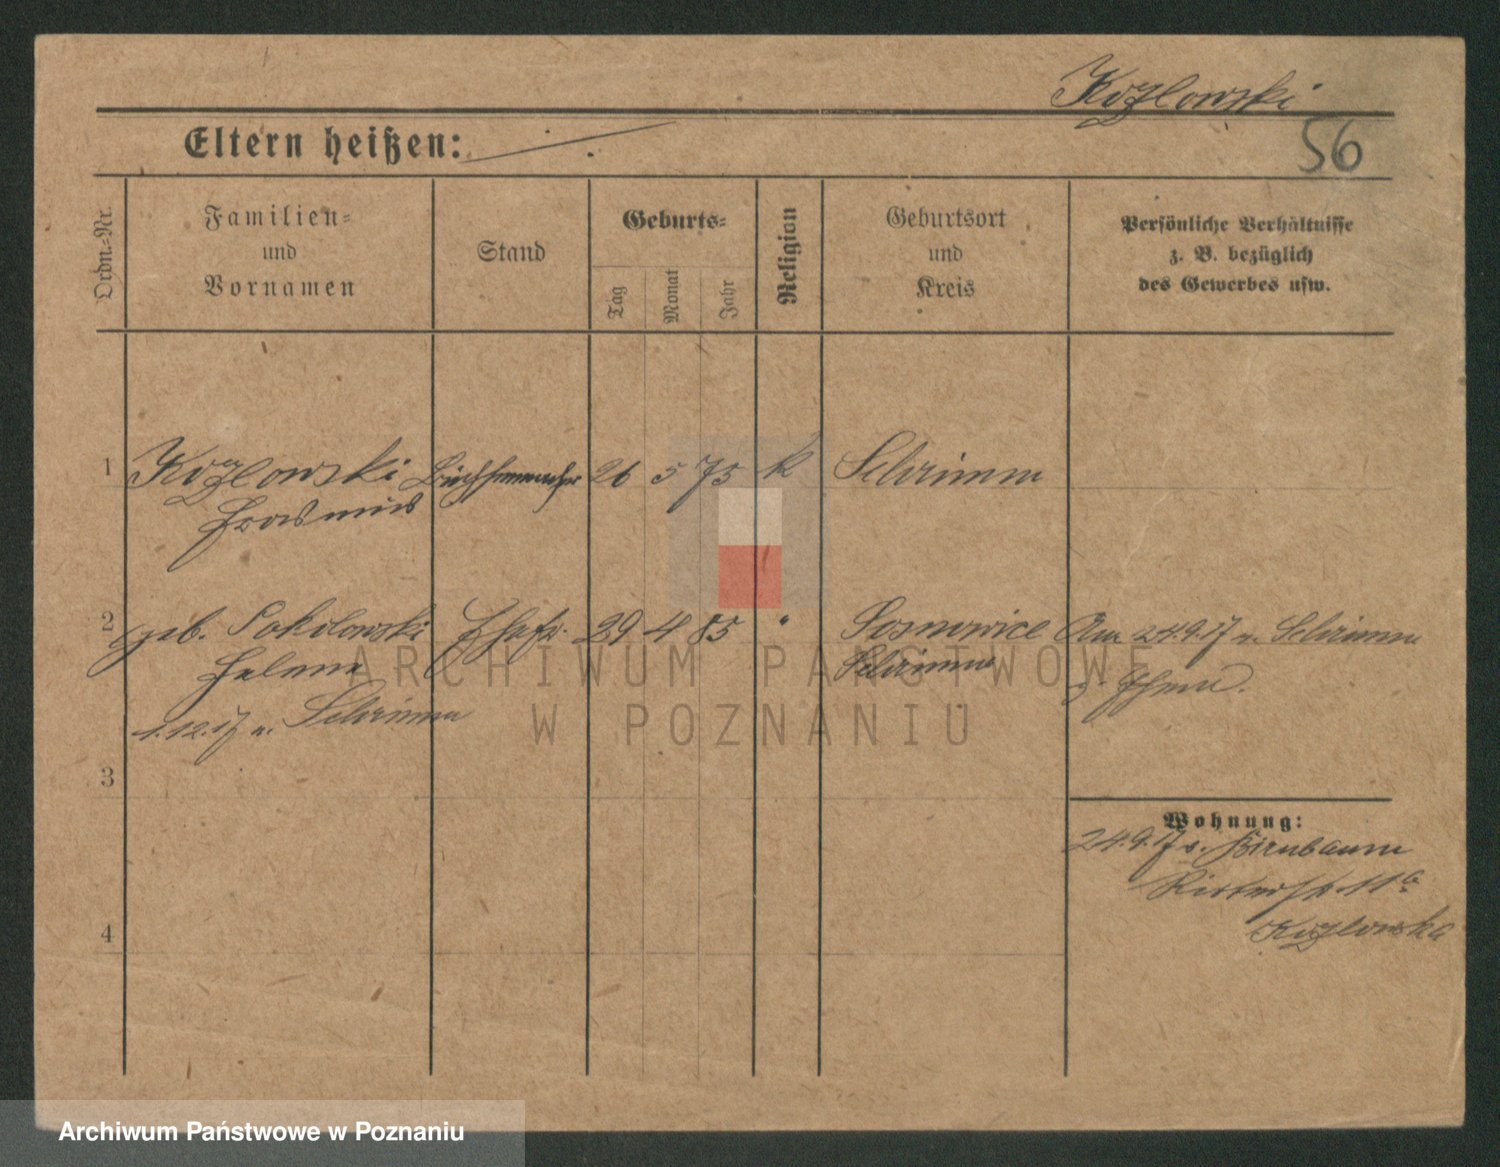 Kozlowski
Eltern heißen:
56
Ordn.-Nr.
Familien-
und
Vornamen
Stand
Geburts-
Tag
Monat
Jahr
Religion
Geburtsort
und
Kreis
Persönliche Verhältnisse
z. B. bezüglich
des Gewerbes usw.
1 Kozlowski Büchsenmacher 26 5 75 K Schrimm
Erasmus
2 geb. Sokolowski Ehefr. 29 4 85 " Sosnowice Am 24.9.17 n. Schrimm
Helene Schrimm
1.12.17 n. Schrimm
3
Wohnung:
24.9.17 v. Birnbaum
Ritterstr. 11a
Kozlowska
4
ARCHIWUM PAŃSTWOWE
W POZNANIU
Archiwum Państwowe w Poznaniu